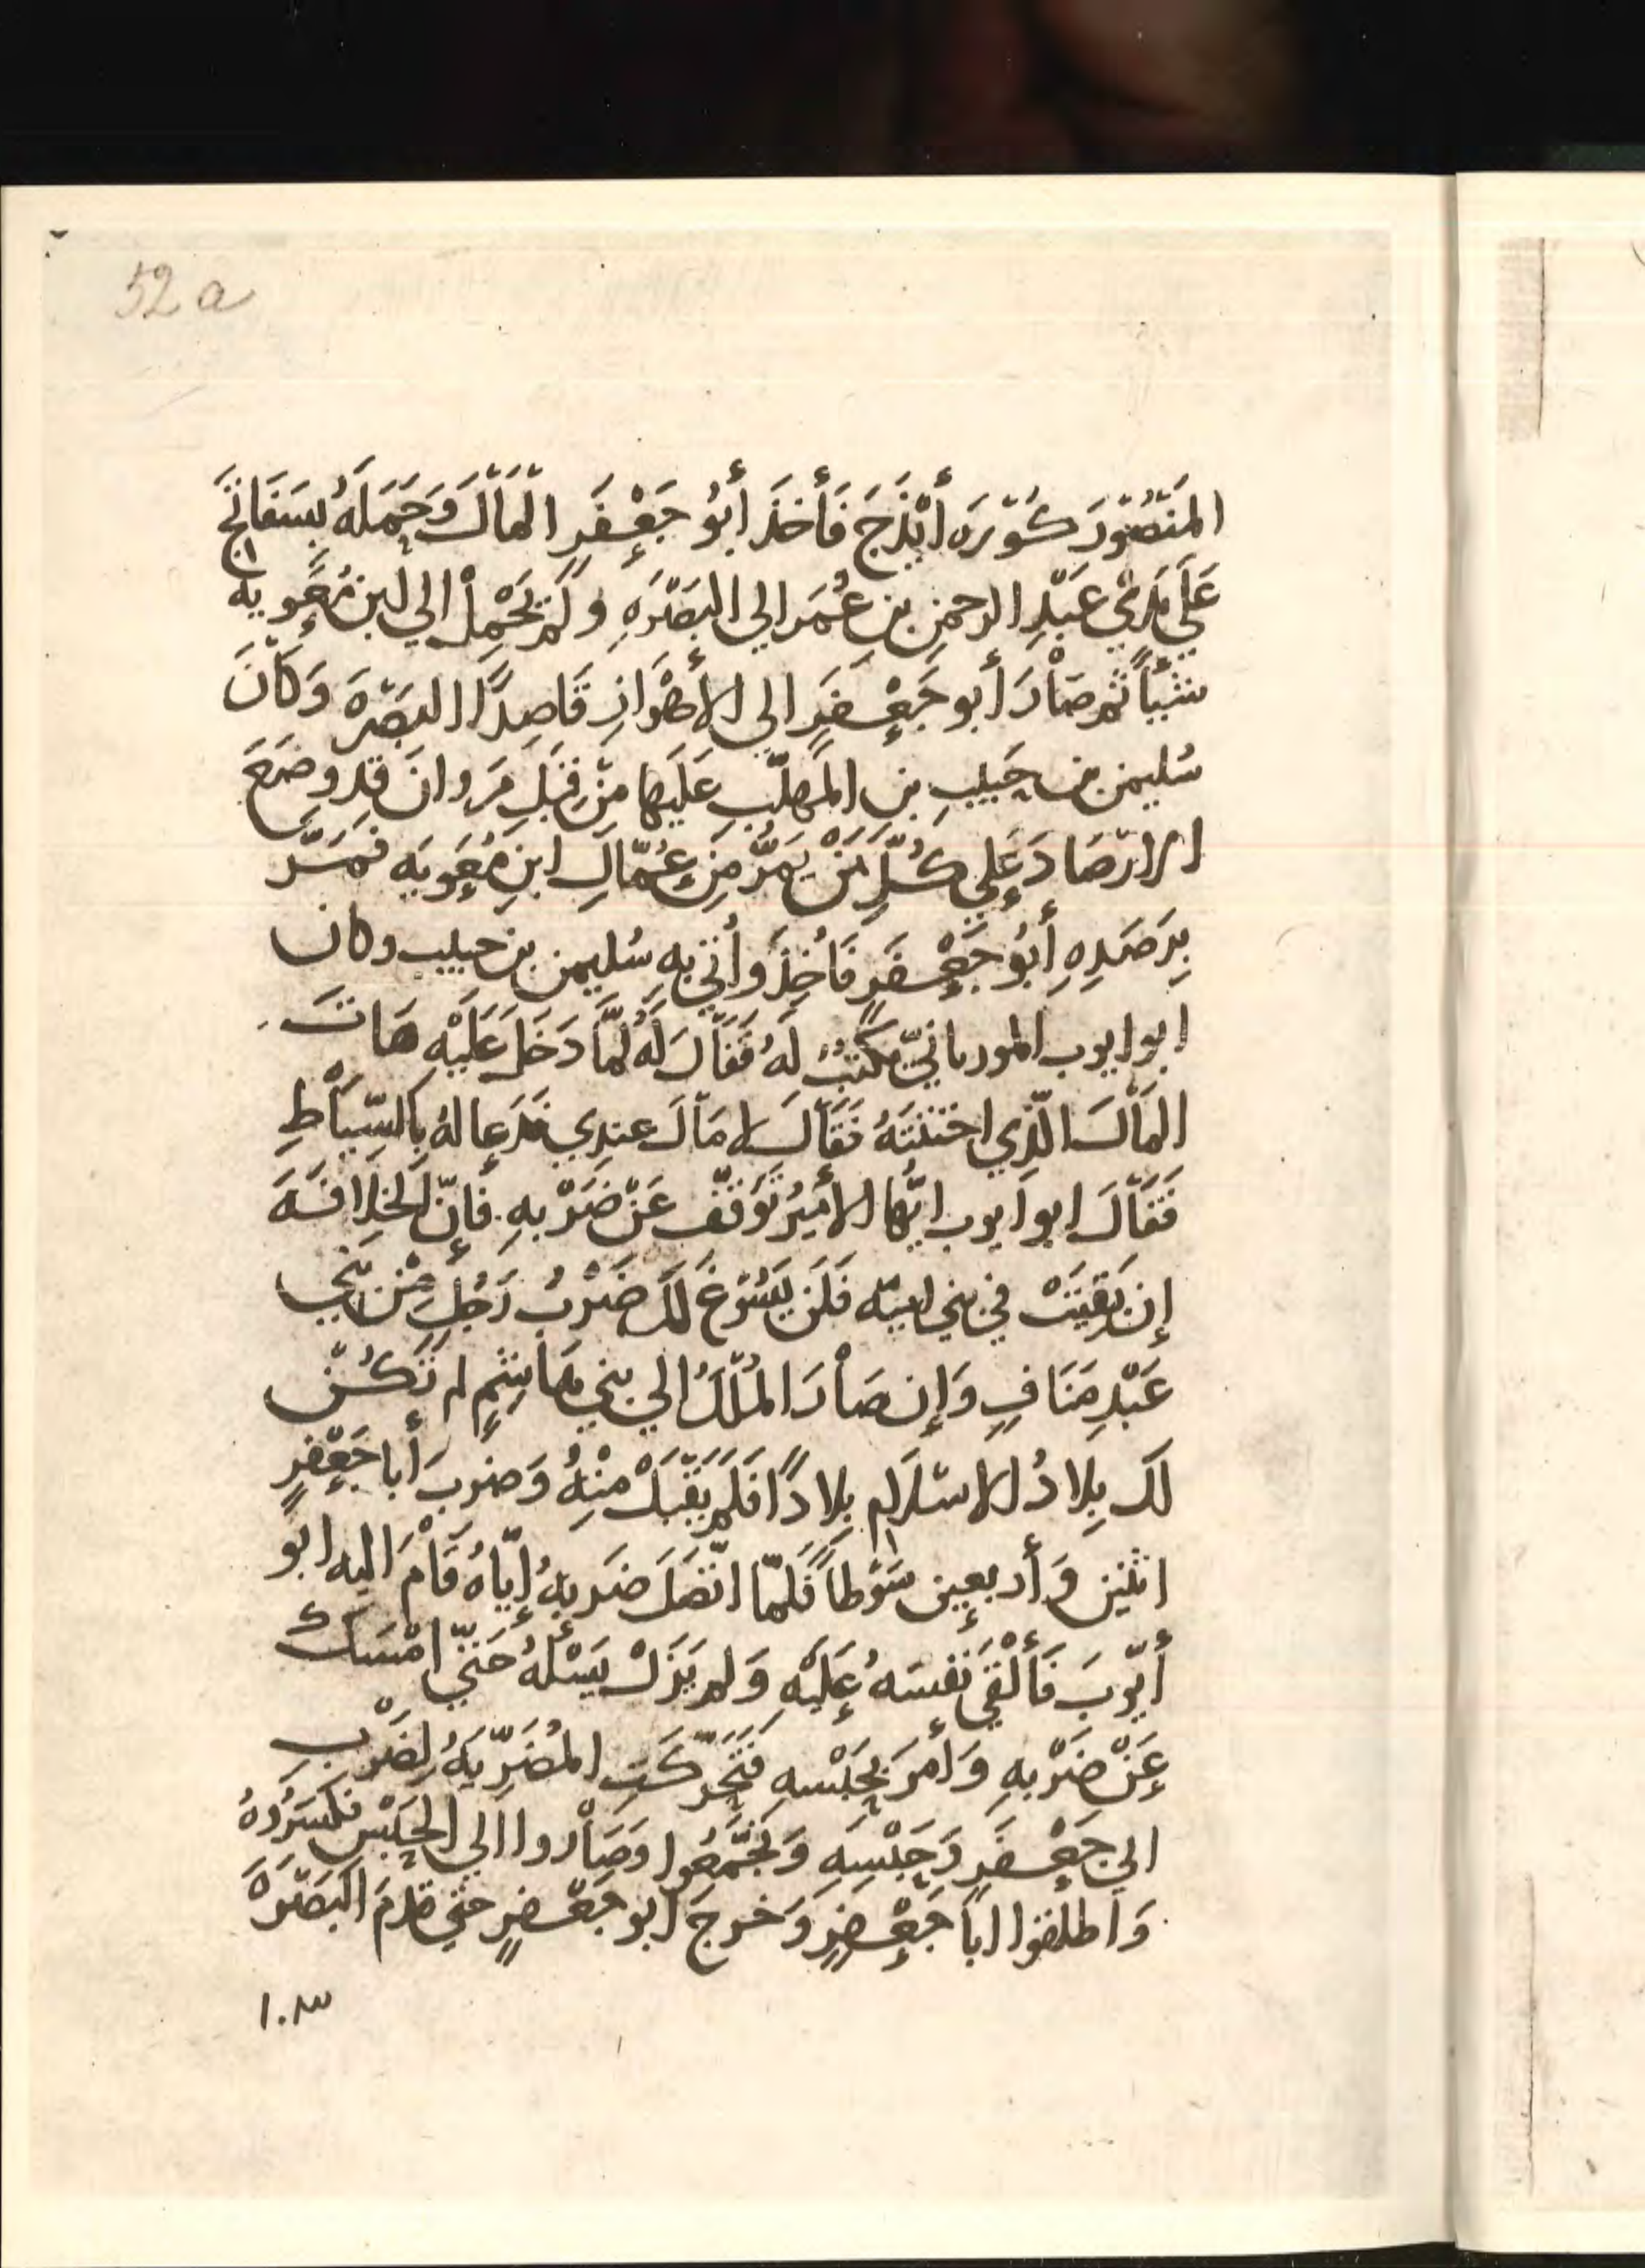 52 a
المَنْصُورَ كُوْرَه أَيْذَجَ فَأَخَذَ أَبُو جَعْفَرٍ الْمَاْلَ وَحَمَلَهُ بِسَفَاتِجَ
عَلَي يَدَيْ عَبْدِ الرحمنِ بنِ عُمَر الي البَصْرَهِ وَلَمْ يَحْمِلْ الي ابنِ مُعَوِيه
شَيْئاً ثم صَاْرَ أَبو جَعْفَرٍ الي الأَهْوَازِ قَاصِدًا البَصْرَهَ وَكَاْنَ
سُليمن بن حَبِيبِ بنِ المُهلّبِ عَلَيها مِنْ قِبَلِ مَرْوانَ قد وضَعَ
الارْصَادَ عَلي كُلِّ مَنْ يَمُرُّ مِن عُمّالِ ابنِ مُعَوِيَه فَمَرَّ
بِرَصَدِهِ أَبُو جَعْفَرٍ فَأُخِذَ وأُتي بِهِ سُليمن بن حبيب وكان
ابو ايوب المورياني يَكْتُبُ لَهُ فَقَاْلَ لَهُ لَمَّا دَخَلَ عَلَيْهِ هَاتَ
المَاْلَ الّذِي اخْتَنْتَهُ فَقَاْلَ لا مَاْلَ عِنْدِي فَدَعا لهُ بِالسِّيَاْطِ
فَقَاْلَ ابو ايوب ايّها الأَمِيرُ تَوَقَّفْ عَنْ ضَرْبِهِ فَإِنّ الخِلافَهَ
إِن بَقِيَتْ في بني اميّه فَلَنْ يَسُوْغَ لَكَ ضَرْبُ رَجُلٍ مِنْ بَنِي
عَبْدِ مَنَافٍ وَإِن صَاْرَ المُلْكُ الي بني هَاشِمٍ لم تَكُنْ
لَكَ بِلادُ الاسْلامِ بِلادًا فَلَمْ يَقْبَلْ مِنْهُ وَضَربَ أَبا جَعْفَرٍ
اثنين وَأَربعين سَوْطاً فَلَمّا اتّصَلَ ضَربهُ إيّاهُ قَاْمَ اليه ابو
أَيّوبَ فَأَلْقَيَ نَفْسَهُ عَلَيْهِ وَلم يَزَلْ يَسْئلُهُ حَتّي امْسَكَ
عَنْ ضَرْبِهِ وَأَمَرَ بِحَبْسِهِ فَتَحَرّكَتِ المُضَرِّيَهُ لِضَرْبِ
ابي جَعْفَرٍ وَحَبْسِهِ وَتَجَمَّعُوا وَصَاْروا الي الحَبْسِ فكسَرُوهُ
وَاطلقوا ابَا جَعْفَرٍ وَخرجَ ابو جَعْفَرٍ حتي قَدِمَ البَصْرَهَ
١٠٣